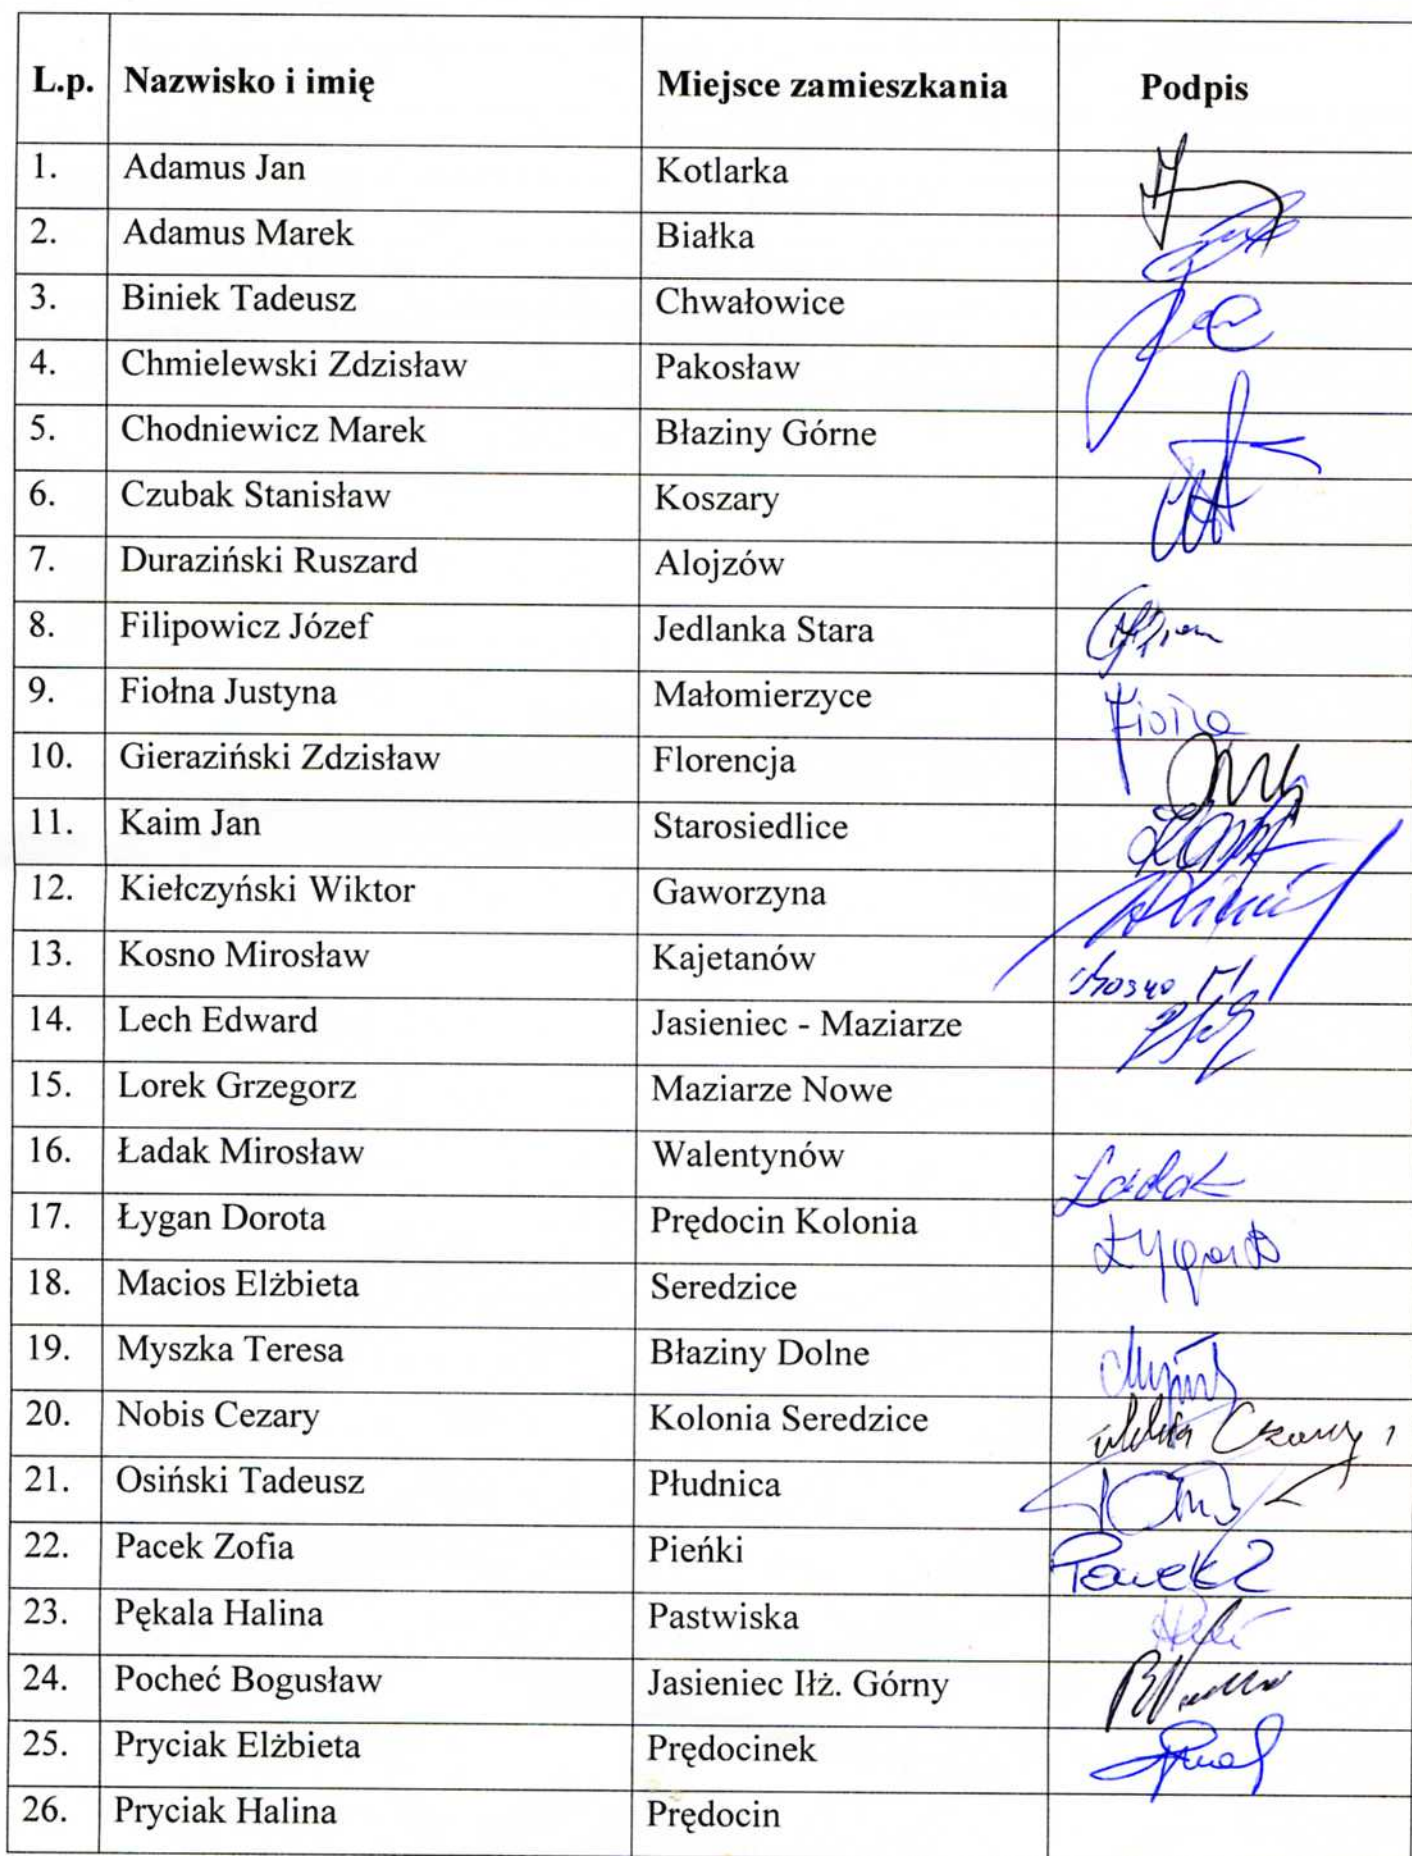 L.p. Nazwisko i imię Miejsce zamieszkania Podpis
1. Adamus Jan Kotlarka
2. Adamus Marek Białka
3. Biniek Tadeusz Chwałowice
4. Chmielewski Zdzisław Pakosław
5. Chodniewicz Marek Błaziny Górne
6. Czubak Stanisław Koszary
7. Duraziński Ruszard Alojzów
8. Filipowicz Józef Jedlanka Stara
9. Fiołna Justyna Małomierzyce
10. Gieraziński Zdzisław Florencja
11. Kaim Jan Starosiedlice
12. Kiełczyński Wiktor Gaworzyna
13. Kosno Mirosław Kajetanów Kosno M
14. Lech Edward Jasieniec - Maziarze
15. Lorek Grzegorz Maziarze Nowe
16. Ładak Mirosław Walentynów Ładak
17. Łygan Dorota Prędocin Kolonia
18. Macios Elżbieta Seredzice
19. Myszka Teresa Błaziny Dolne
20. Nobis Cezary Kolonia Seredzice
21. Osiński Tadeusz Płudnica
22. Pacek Zofia Pieńki Pacek Z
23. Pękala Halina Pastwiska
24. Pocheć Bogusław Jasieniec Iłż. Górny
25. Pryciak Elżbieta Prędocinek
26. Pryciak Halina Prędocin